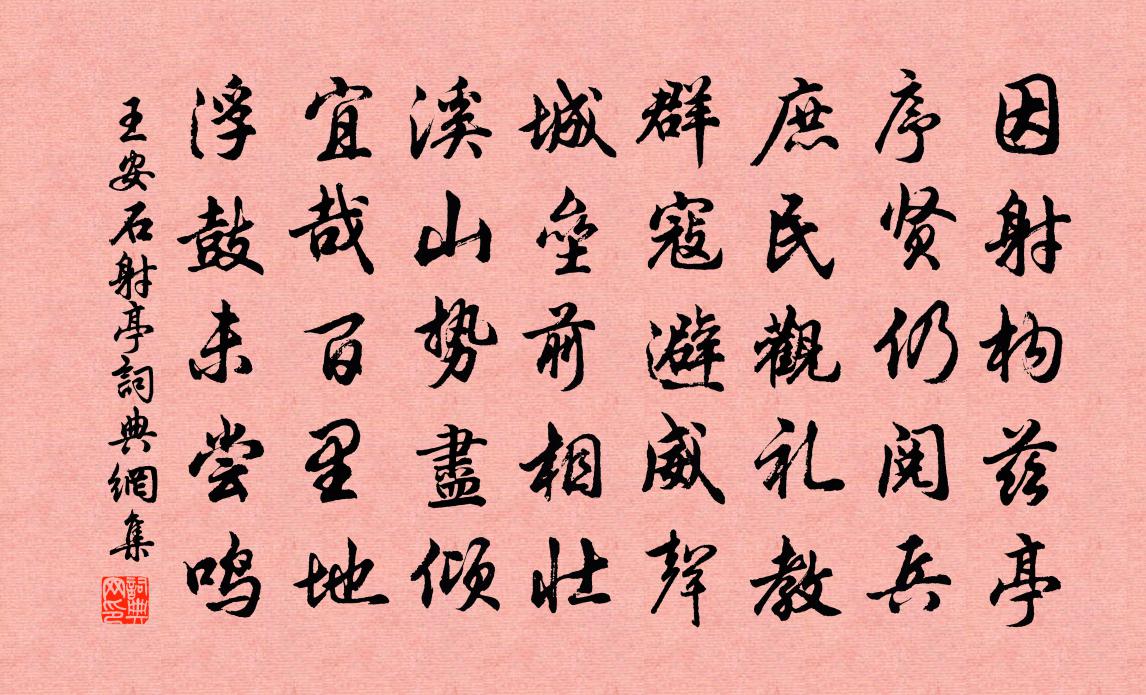 因射构兹亭
序贤仍阅兵
庶民觀礼教
群寇避威聲
城壘前相壮
溪山势盡倾
宜哉百里地
浮鼓未尝鸣
王安石射亭詞典網集
詞典網印